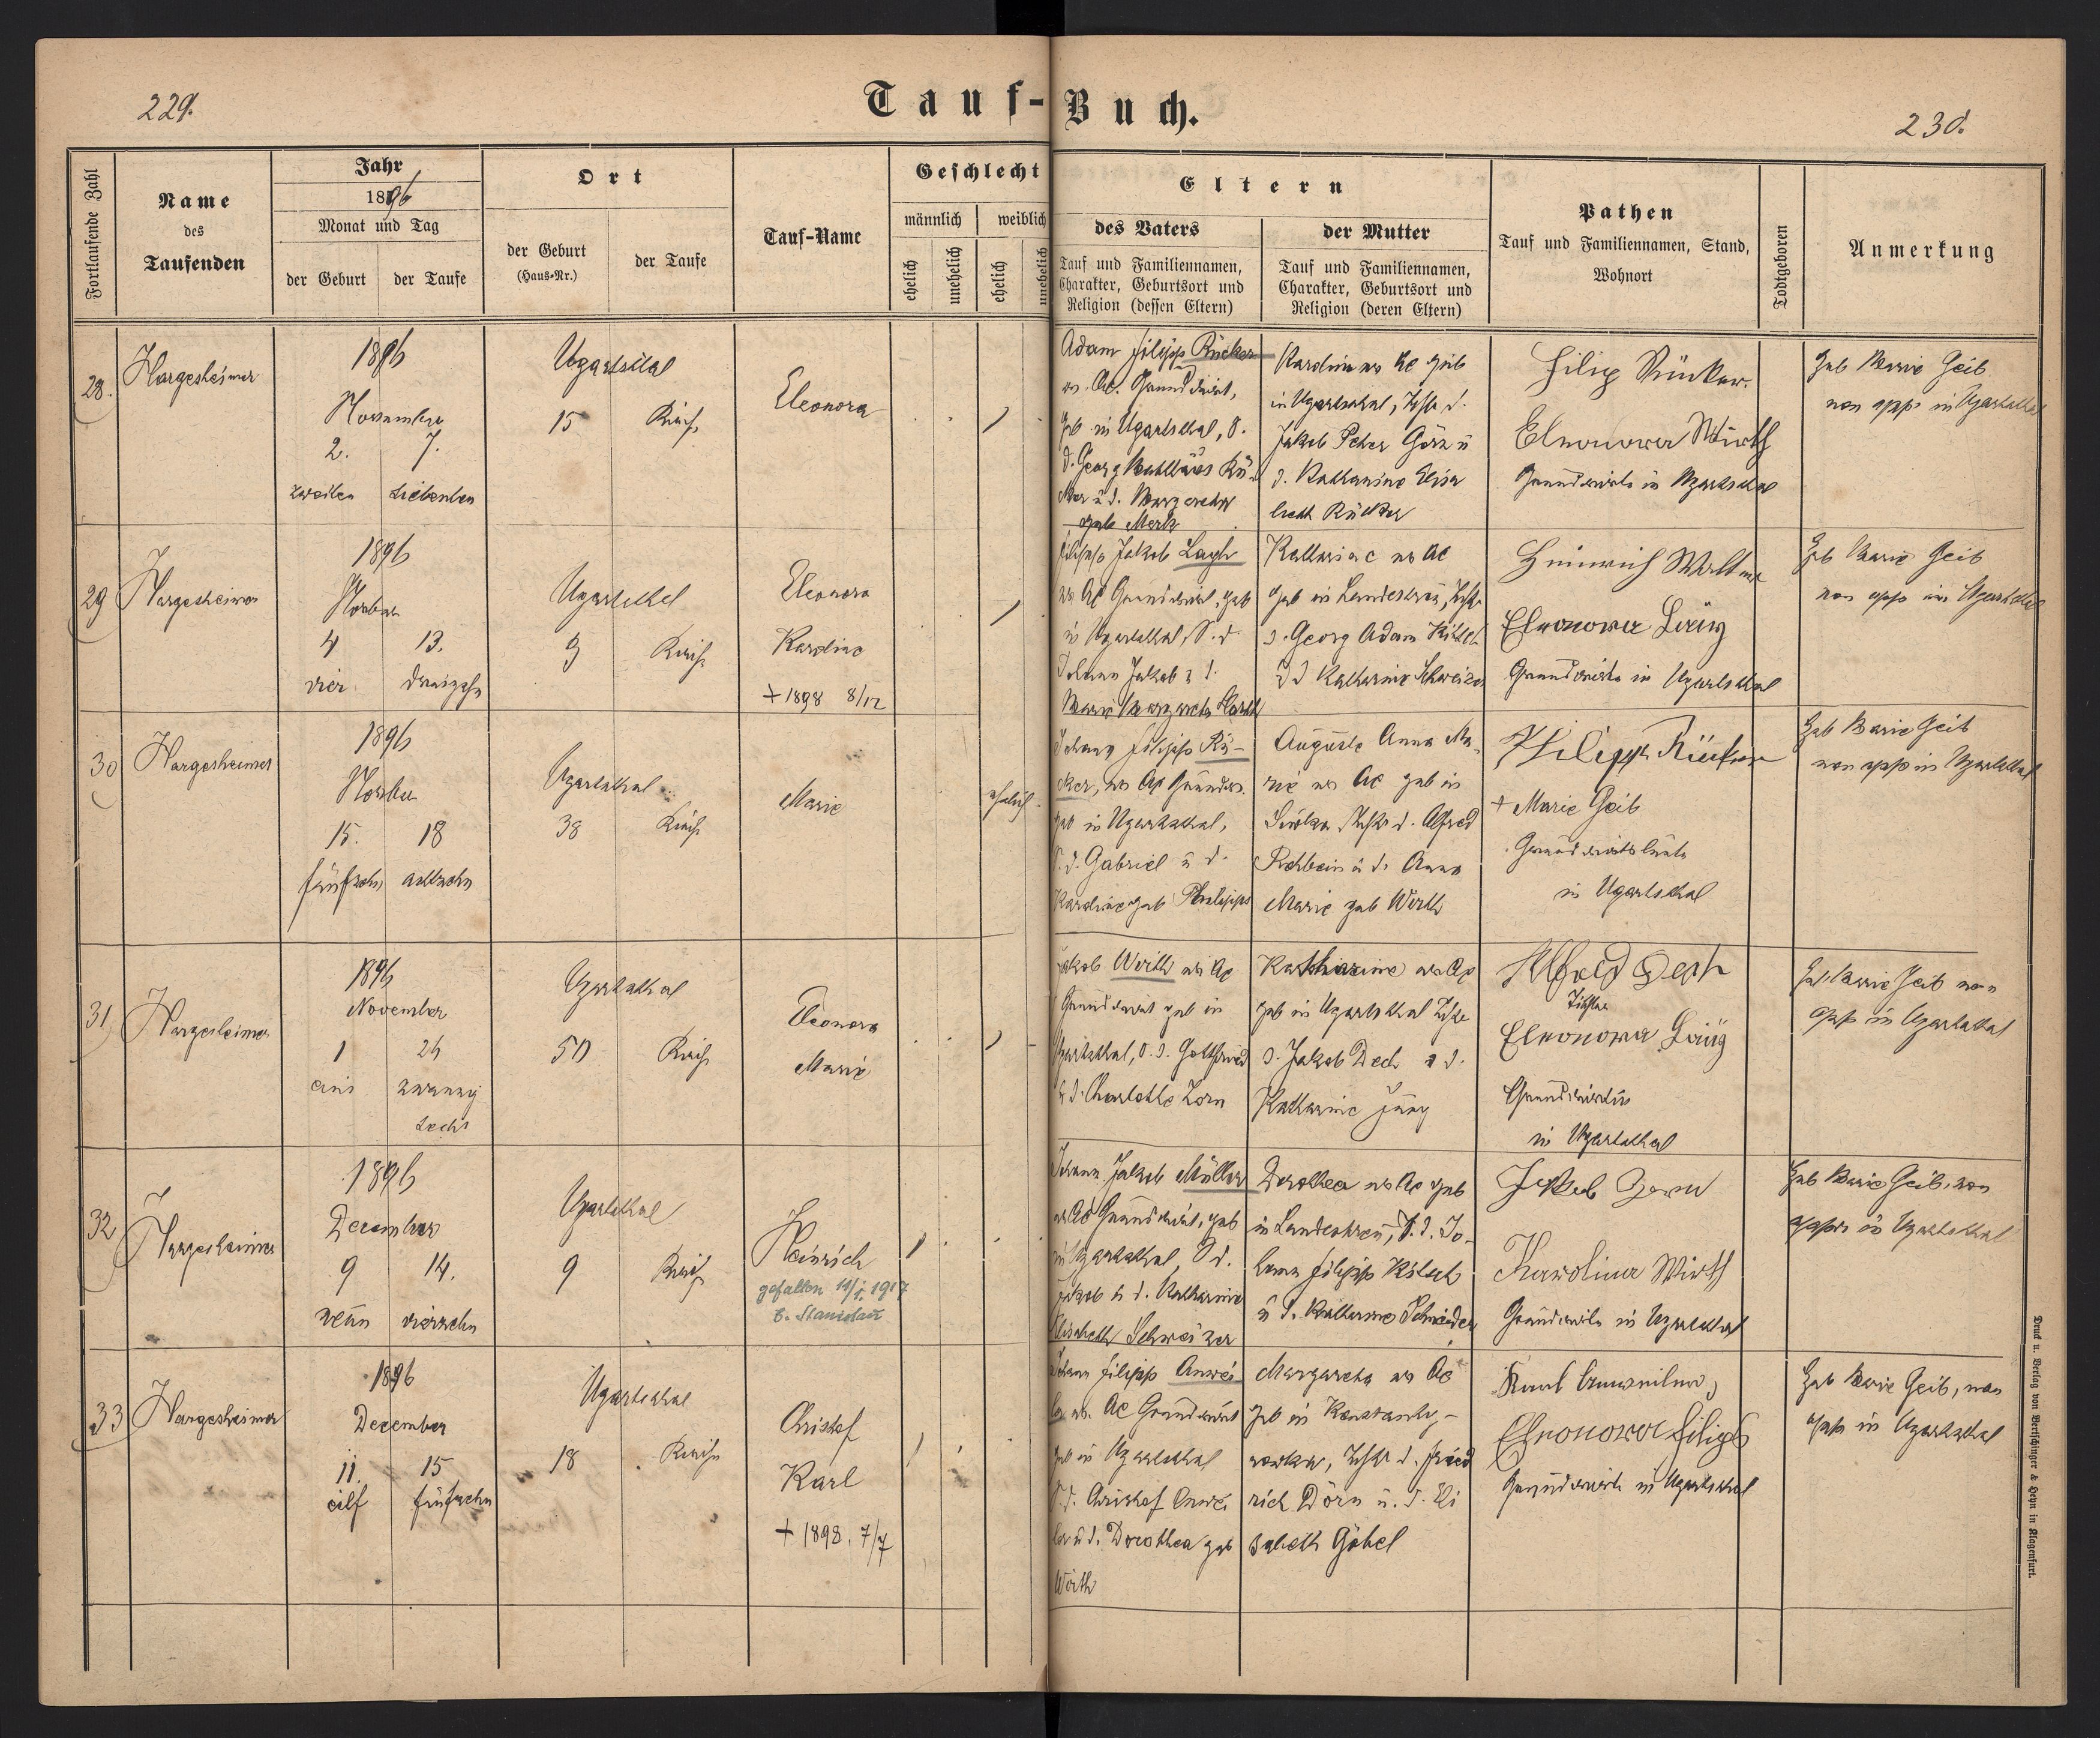 229.
Tauf-Buch.
230.
Fortlaufende Zahl
Name
des
Taufenden
Jahr
1896
Monat und Tag
der Geburt
der Taufe
Ort
der Geburt
(Haus-Nr.)
der Taufe
Tauf-Name
Geschlecht
männlich
weiblich
ehelich
unehelich
ehelich
unehelich
Eltern
des Vaters
Tauf und Familiennamen,
Charakter, Geburtsort und
Religion (dessen Eltern)
der Mutter
Tauf und Familiennamen,
Charakter, Geburtsort und
Religion (deren Eltern)
Pathen
Tauf und Familiennamen, Stand,
Wohnort
Todtgeboren
Anmerkung
28.
Hargesheimer
1896
November
2. 7.
zweiten siebenten
Ugartsthal
15 Kirche
Eleonora
Adam Filipp Rücker
ev. AC. Grundwirt,
geb in Ugartsthal, S.
d. Georg Matthäus Rü-
cker u d. Margaretha
geb Merk
Karoline ev AC geb
in Ugartsthal, Tochter d.
Jakob Peter Görz u
d. Katharina Elisa
beth Rücker
Filip Rücker.
Eleonora Wirth
Grundwirte in Ugartsthal
Heb Marie Geib
non app in Ugartsthal
29
Hargesheimer
1896
Novber
4 13.
vier dreizehn
Ugartsthal
9 Kirche
Eleonora
Karoline
+ 1898 8/12
Filipp Jakob
ev AC Grundwirt, geb
in Ugartsthal, S. d.
Johann Jakob u d.
Marie Margaretha
Katharine ev AC
geb in Landestreu, Tochter
d. Georg Adam
u d Katharine Schweizer
Heinrich
Eleonora
Grundwirte in Ugartsthal
Heb Marie Geib
non app in Ugartsthal
30
Hargesheimer
1896
Novber
15. 18
fünfzehn achtzehn
Ugartsthal
38 Kirche
Marie
ehelich
Johann Filipp Rü-
cker, ev AC Grundw.
geb in Ugartsthal,
S. d. Gabriel u d.
Karoline geb Philipps
Auguste Anna Ma-
rie ev AC geb in
Tochter d. Alfred
Rehbein u d. Anna
Marie geb Wirth
Philipp Rücker
+ Marie Geib
Grundwirtsleute
in Ugartsthal
Heb Marie Geib
non app in Ugartsthal
31
Hargesheimer
1896
November
1 26
eins zwanzig
sechs
Ugartsthal
50 Kirche
Eleonora
Marie
Jakob Wirth ev AC
Grundwirt geb in
Ugartsthal, S. d. Gottfried
u d. Charlotte Zorn
Katharine ev AC
geb in Ugartsthal Tochter
d. Jakob Dech u d.
Katharine Jung
Dech
Tischler
Eleonora
Grundwirtin
in Ugartsthal
Heb. Marie Geib non
app in Ugartsthal
32
Hargesheimer
1896
December
9 14.
neun vierzehn
Ugartsthal
9 Kirche
Heinrich
gefallen 11/I. 1917
b. Stanislau
Johann Jakob Müller
ev AC Grundwirt, geb
in Ugartsthal, S d.
Jakob u d. Katharine
Elisabeth Schweizer
Dorothea ev AC geb
in Landestreu, T. d. Jo-
hann Filipp
u d. Katharine Schneider
Jakob Zorn
Karolina Wirth
Grundwirte in Ugartsthal
Heb Marie Geib, non
approb in Ugartsthal
33
Hargesheimer
1896
December
11. 15
eilf fünfzehn
Ugartsthal
18 Kirche
Christof
Karl
+ 1898. 7/7
Johann Filipp Anwei
ler ev. AC Grundwirt
geb in Ugartsthal
S. d. Christof Anwei
ler u d. Dorothea geb
Wirth
Margaretha ev AC
geb in
Tochter d. Fried
rich Dörn u. d. Eli
sabeth Göbel
Karl Anweiler,
Eleonora Filips
Grundwirte in Ugartsthal
Heb Marie Geib, non
app in Ugartsthal
Druck u. Verlag von Bertschinger & Heyn in Klagenfurt.